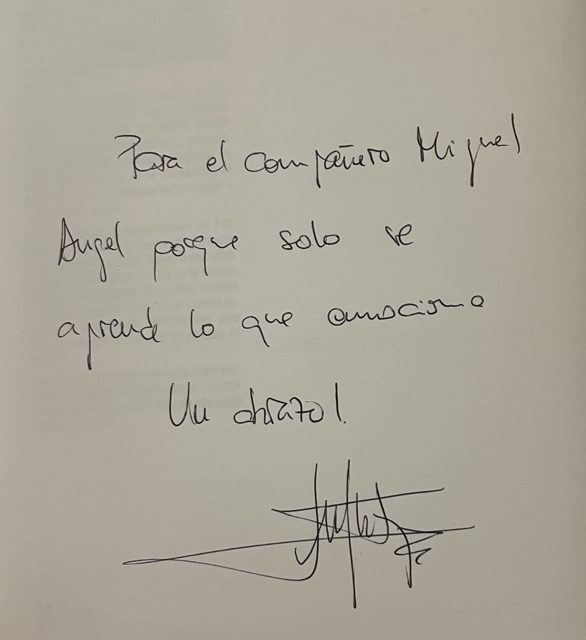 Para el compañero Miguel
Angel porque solo se
aprende lo que
Un abrazo!